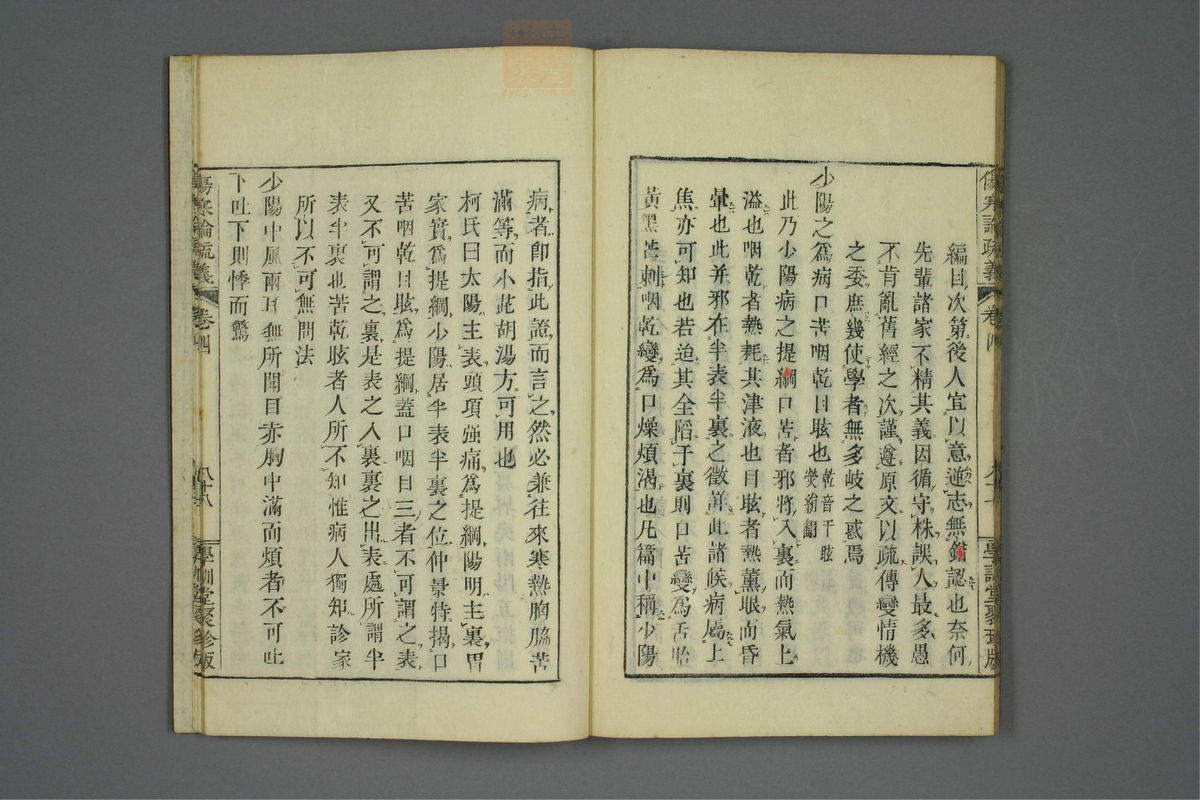 編目次第後人宜以意逆志無錯認也奈何
先輩諸家不精其義因循守株誤人最多愚
不肯亂舊經之次謹遵原文以疏傳變情機
之委庶幾使學者無多岐之惑焉
少陽之爲病口苦咽乾目眩也乾音干眩
熒絹翻
此乃少陽病之提綱口苦者邪將入裏而熱氣上
溢也咽乾者熱耗其津液也目眩者熱薰眼而昏
暈也此并邪在半表半裏之徵善此諸候病屬上
焦亦可知也若迨其全陷于裏則口苦變爲舌胎
黃黑芒刺咽乾變爲口燥煩渴也凡篇中稱少陽
傷寒論疏義
卷四
學訓堂聚珍版
病者卽指此證而言之然必兼往來寒熱胸脇苦
滿等而小茈胡湯方可用也
柯氏曰太陽主表頭項强痛爲提綱陽明主裏胃
家實爲提綱少陽居半表半裏之位仲景特揭口
苦咽乾目眩爲提綱蓋口咽目三者不可謂之表
又不可謂之裏是表之入裏裏之出表處所謂半
表半裏也苦乾眩者人所不知惟病人獨知診家
所以不可無問法
少陽中風兩耳無所聞目赤胸中滿而煩者不可吐
下吐下則悸而驚
傷寒論疏義
卷四
八十八
學訓堂聚珍版